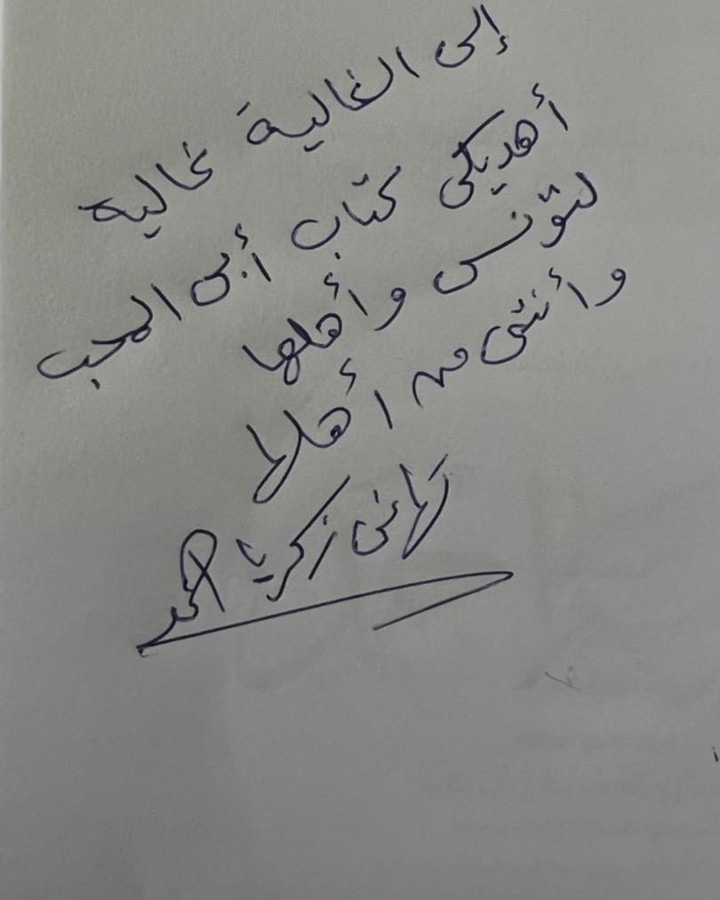 إلى الغالية غالية
أهديكى كتاب أبى المحب
لتونس وأهلها
وأنتى من أهلها
تهانى زكريا أحمد